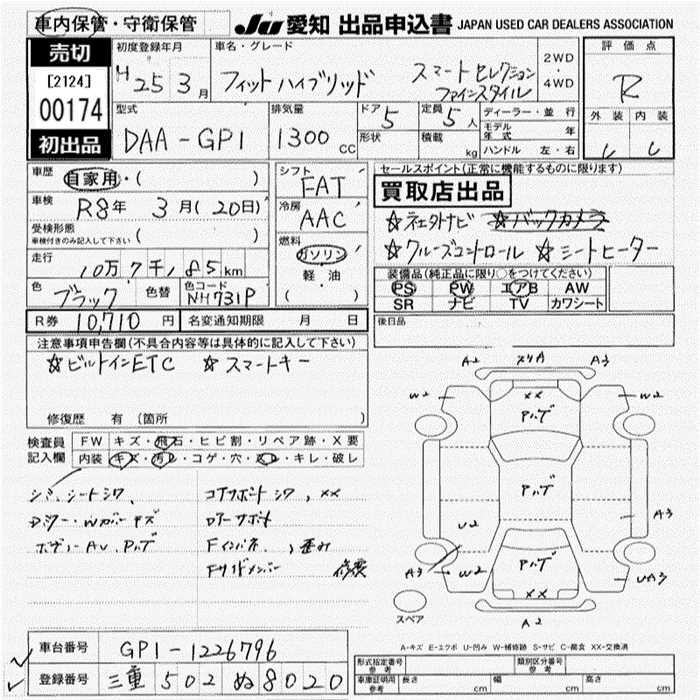 車内保管・守衛保管
JU 愛知 出品申込書 JAPAN USED CAR DEALERS ASSOCIATION
売切
[2124]
00174
初出品
初度登録年月
H 25 3 月
車名・グレード
フィットハイブリッド スマートセレクション
ファインスタイル
2WD
・
4WD
評価点
R
外装 内装
型式
DAA-GP1
排気量
1300 cc
ドア 5
形状
定員 5 人
積載 kg
ディーラー・並行
モデル年式 年
ハンドル 左・右
車歴
自家用・( )
車検 R8年 3月(20日)
受検形態
車検付きのみ記入して下さい ( )
走行 10万7千185km
色 ブラック 色替 色コード NH731P
R券 10,710 円 名変通知期限 月 日
シフト
FAT
冷房
AAC
燃料
ガソリン
軽油
( )
セールスポイント(正常に機能するものに限ります)
買取店出品
☆社外ナビ ☆バックカメラ
☆クルーズコントロール ☆シートヒーター
装備品(純正品に限り○をつけてください)
PS PW エアB AW
SR ナビ TV カワシート
後日品
注意事項申告欄(不具合内容等は具体的に記入して下さい)
☆ビルトインETC ☆スマートキー
修復歴 有 (箇所 )
検査員
記入欄
FW キズ・飛石・ヒビ割・リペア跡・X要
内装 キズ・汚レ・コゲ・穴・スレ・キレ・破レ
シミ、シートシワ、
コアサポートシワ、XX
修復
A2 A3
W2 W2
XX
U2 A3
A3 W2 UA3
XX
A2
スペア
A-キズ E-エクボ U-凹み W-補修跡 S-サビ C-腐食 XX-交換済
車台番号 GP1-1226796
登録番号 三重 502 ぬ 8020
形式指定番号 参考
類別区分番号 参考
車庫証明用 参考 長さ cm 幅 cm 高さ cm